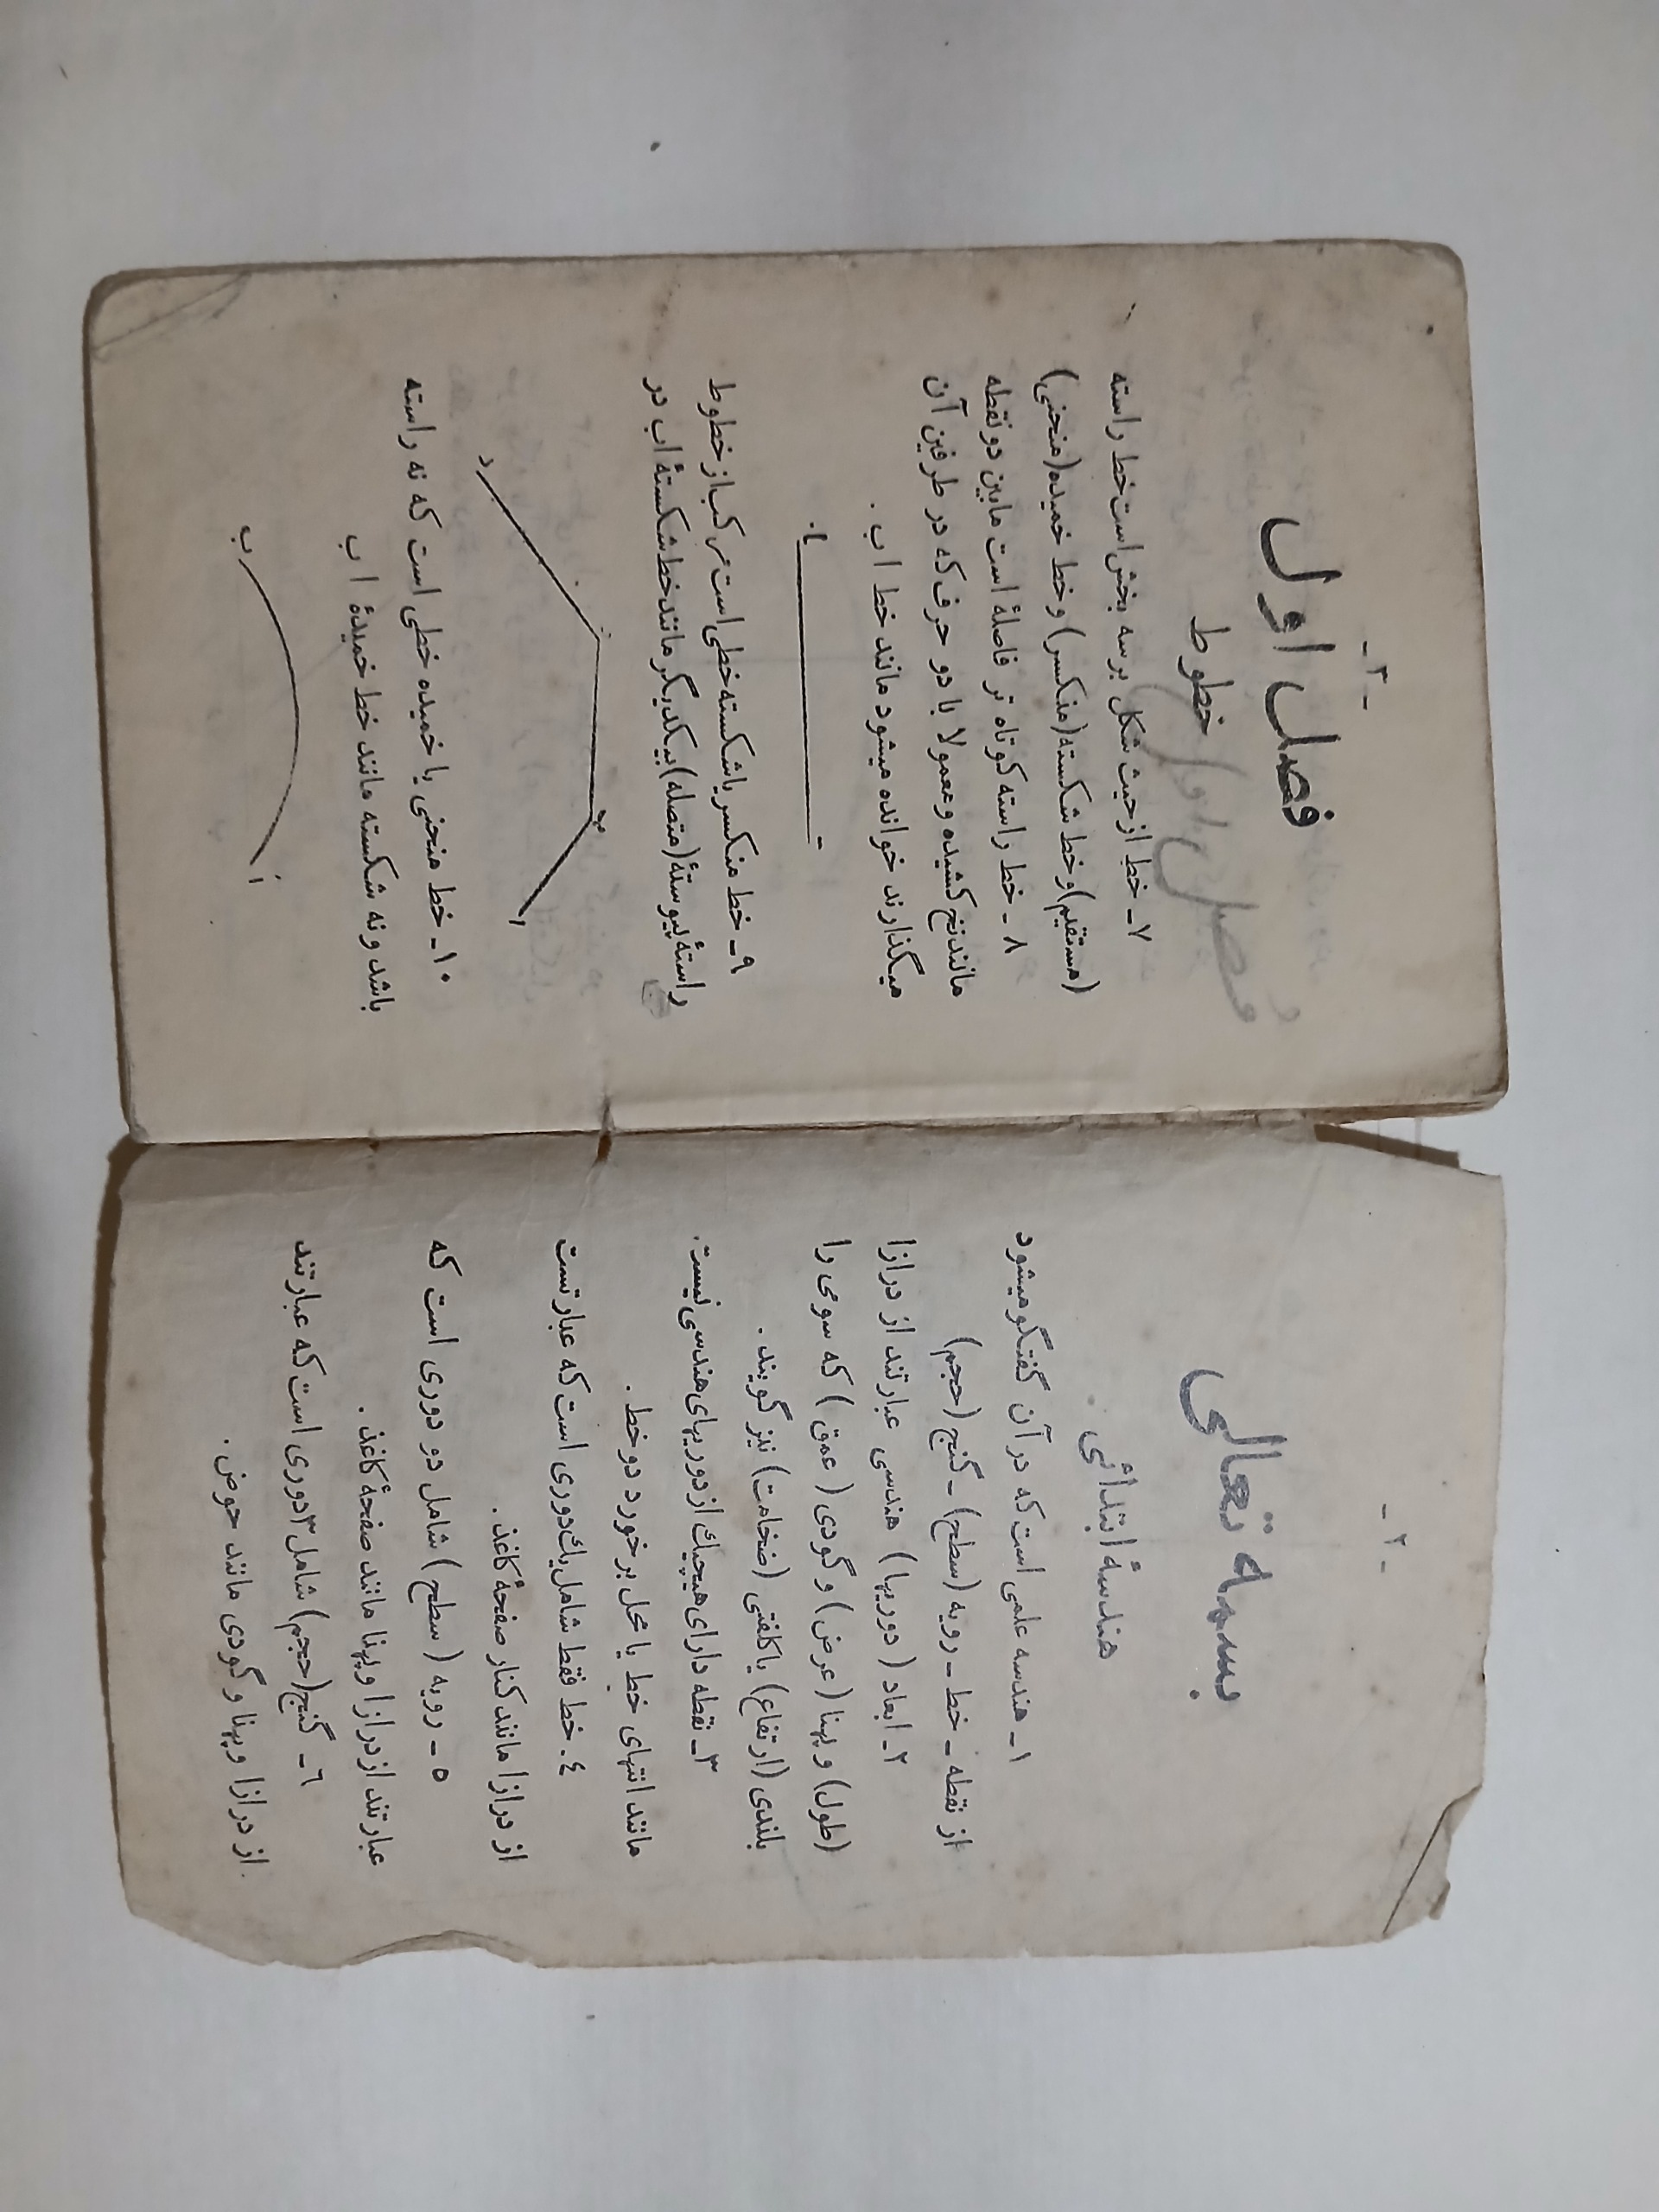 - ۲ -
بسمه تعالی
هندسهٔ ابتدائی
۱ - هندسه علمی است که در آن گفتگو میشود
از نقطه - خط - رویه (سطح) - گنج (حجم)
۲ - ابعاد (دوریها) هندسی عبارتند از درازا
(طول) و پهنا (عرض) و گودی (عمق) که سومی را
بلندی (ارتفاع) یا کلفتی (ضخامت) نیز گویند .
۳ - نقطه دارای هیچیك از دوریهای هندسی نیست.
مانند انتهای خط یا محل برخورد دو خط .
٤ - خط فقط شامل یك دوری است که عبارتست
از درازا مانند کنار صفحهٔ کاغذ .
۵ - رویه (سطح) شامل دو دوری است که
عبارتند از درازا و پهنا مانند صفحهٔ کاغذ .
٦ - گنج (حجم) شامل ۳ دوری است که عبارتند
از درازا و پهنا و گودی مانند حوض .
- ۳ -
فصل اول
خطوط
فصل اول
۷ - خط از حیث شکل بر سه بخش است خط راسته
(مستقیم) و خط شکسته (منکسر) و خط خمیده (منحنی)
۸ - خط راسته کوتاه تر فاصلهٔ است مابین دو نقطه
مانند نخ کشیده و معمولا با دو حرف که در طرفین آن
میگذارند خوانده میشود مانند خط ا ب .
۹ - خط منکسر یا شکسته خطی است مرکب از خطوط
راستهٔ پیوستهٔ (متصله) بیکدیگر مانند خط شکستهٔ اب در
د
ا
۱۰ - خط منحنی یا خمیده خطی است که نه راسته
باشد و نه شکسته مانند خط خمیدهٔ ا ب
ب
أ